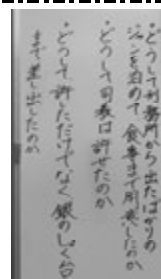 ・どうして刑務所から出たばかりの
ジャンを泊めて、食事まで用意したのか
・どうして司教は許せたのか
・どうして許しただけでなく銀のしょく台
まで差し出したのか